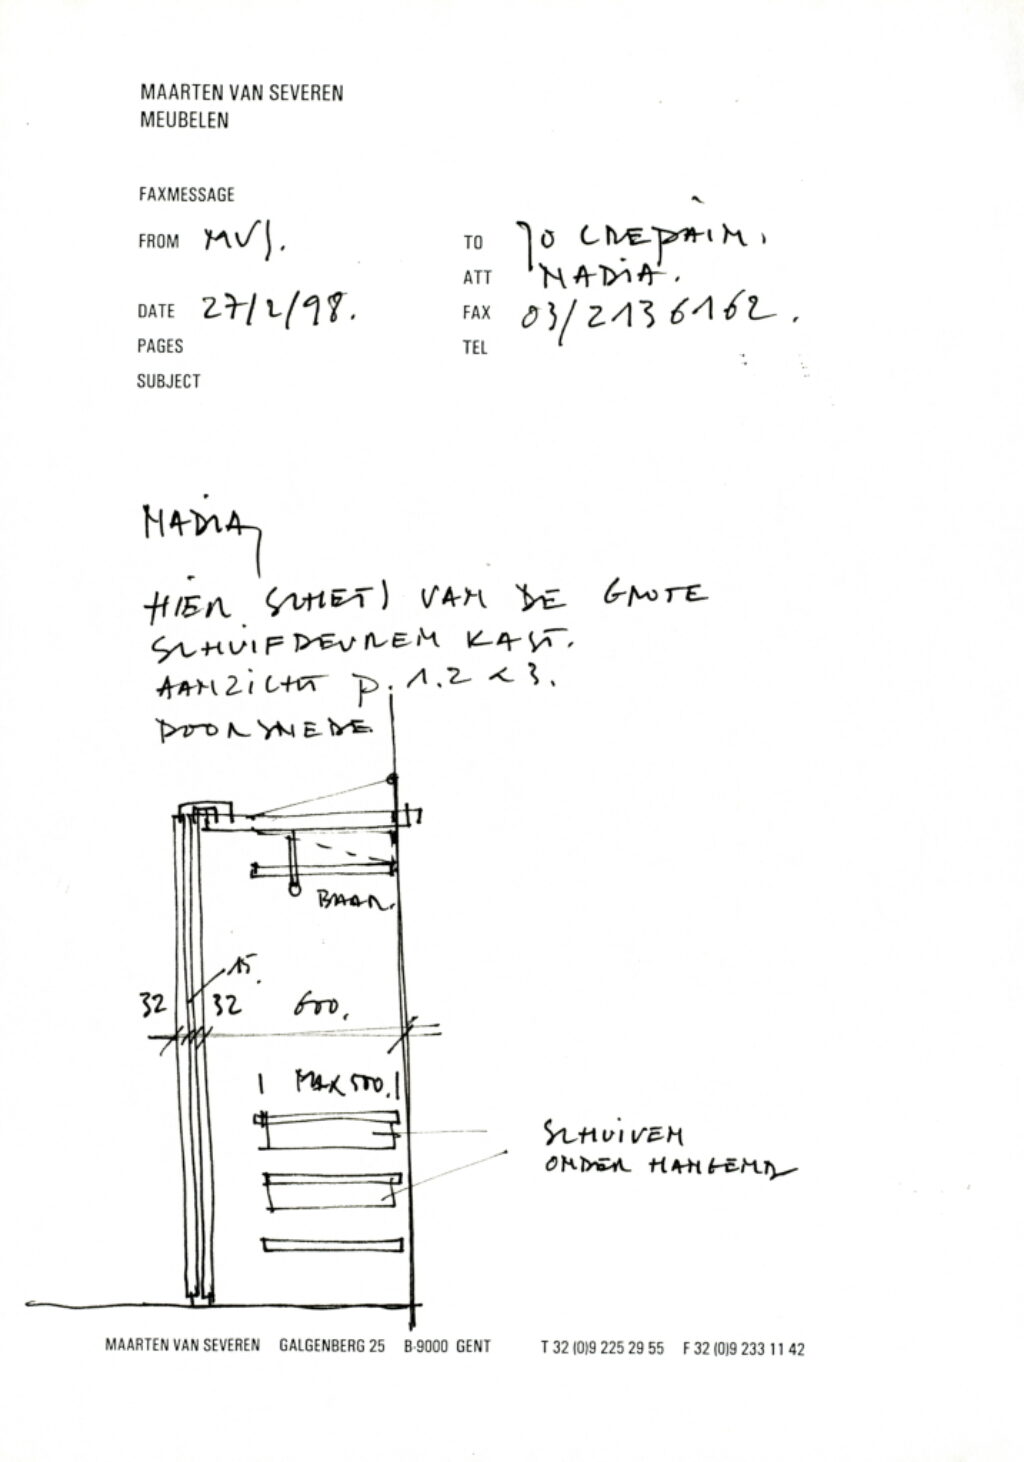 MAARTEN VAN SEVEREN
MEUBELEN
FAXMESSAGE
FROM MVS.
TO JO CREPAIN.
ATT NADIA.
DATE 27/2/98.
FAX 03/2136162.
PAGES
TEL
SUBJECT
NADIA,
HIER SCHETS VAN DE GROTE
SCHUIFDEUREN KAST.
AANZICHT P. 1.2 & 3.
DOORSNEDE
BAAR.
15.
32 32 600.
MAX 500.
SCHUIVEN
ONDER HANGEND
MAARTEN VAN SEVEREN GALGENBERG 25 B-9000 GENT T 32 (0)9 225 29 55 F 32 (0)9 233 11 42